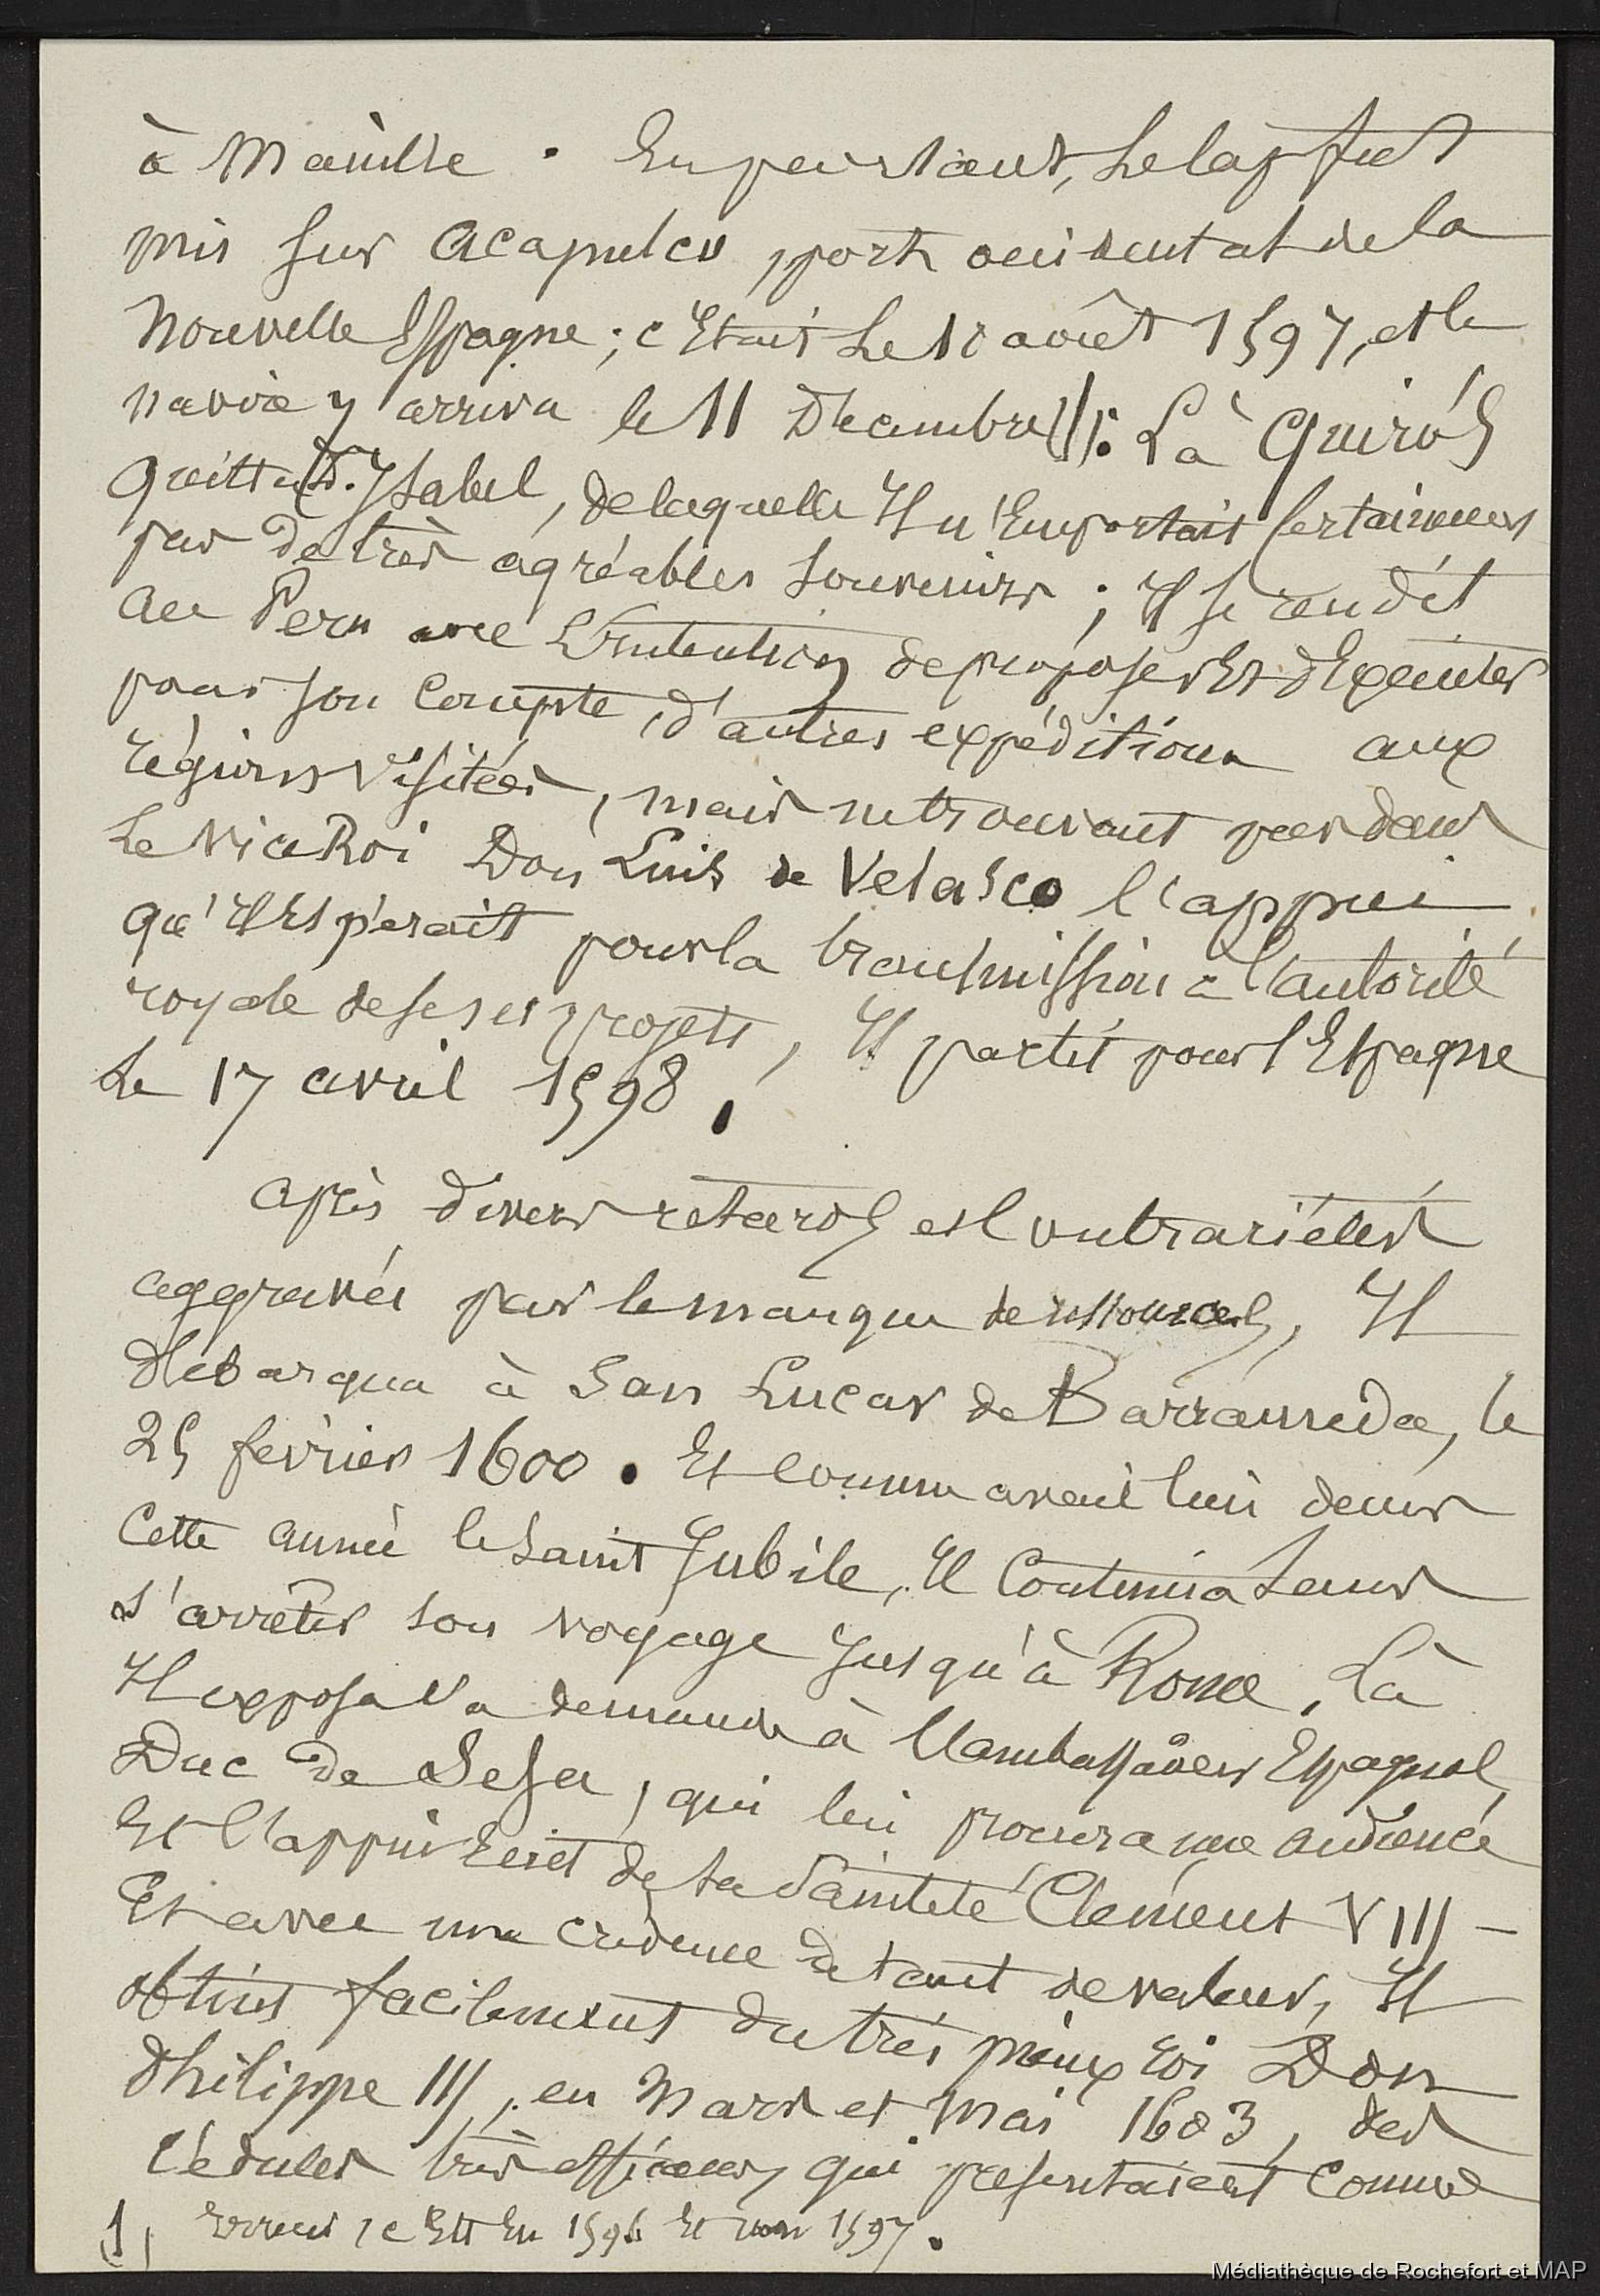 à Manille. En partant, le cap fut
mis sur Acapulco, port occidental de la
Nouvelle Espagne; c'Etait le 10 août 1597, et le
navire y arriva le 11 Décembre (1). Là Quirós
quitta D. Ysabel, de laquelle Il n'Emportait certainement
pas de très agréables souvenirs; Il se rendit
au Perou avec L'Intention de proposer Et d'Exécuter
pour son compte, d'autres expéditions aux
régions visitées, mais ne trouvant pas dans
Le Vice Roi Don Luis de Velasco l'appui
qu'Il Espérait pour la transmission à l'autorité
royale de ses projets, Il partit pour l'Espagne
Le 17 avril 1598.
Après divers retards et contrariétés
aggravés par le manque de ressources, Il
débarqua à San Lucar de Barrameda, le
25 février 1600. Et comme avait lieu dans
Cette année le Saint Jubilé, Il Continua sans
s'arrêter son voyage Jusqu'à Rome. Là
Il exposa sa demande à l'ambassadeur Espagnol,
Duc de Sesa, qui lui procura une audience
Et l'appui Ecrit de sa Sainteté Clément VIII -
Et avec une crédence de tant de valeur, Il
obtint facilement du très pieux roi Don
Philippe III, en Mars et Mai 1603, des
Cédules très efficaces, qui présentaient comme
(1) erreur, c'Est En 1596 Et non 1597.
Médiathèque de Rochefort et MAP